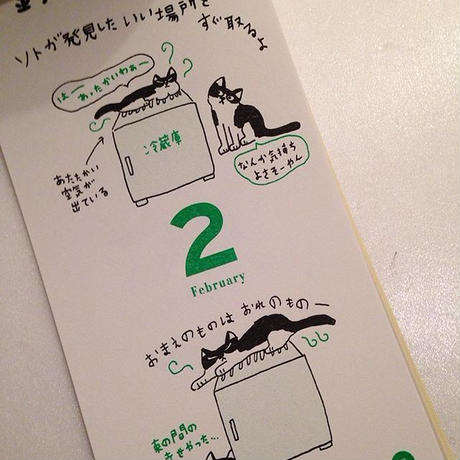 ソトが発見したいい場所を
すぐ取るよ
はー
あったかいわぁー
冷蔵庫
なんか気持ち
よさそーやん
あたたかい
空気が
出ている
2
February
おまえのものは おれのものー
束の間の
幸せやった…